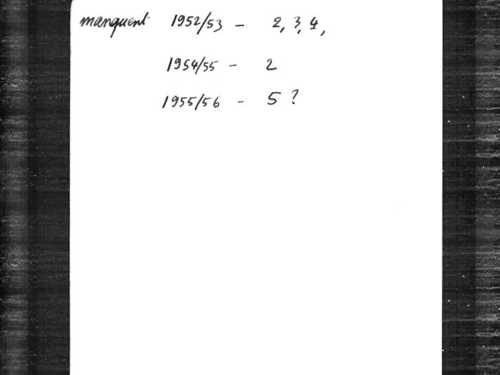 manquent 1952/53 - 2, 3, 4,
1954/55 - 2
1955/56 - 5 ?